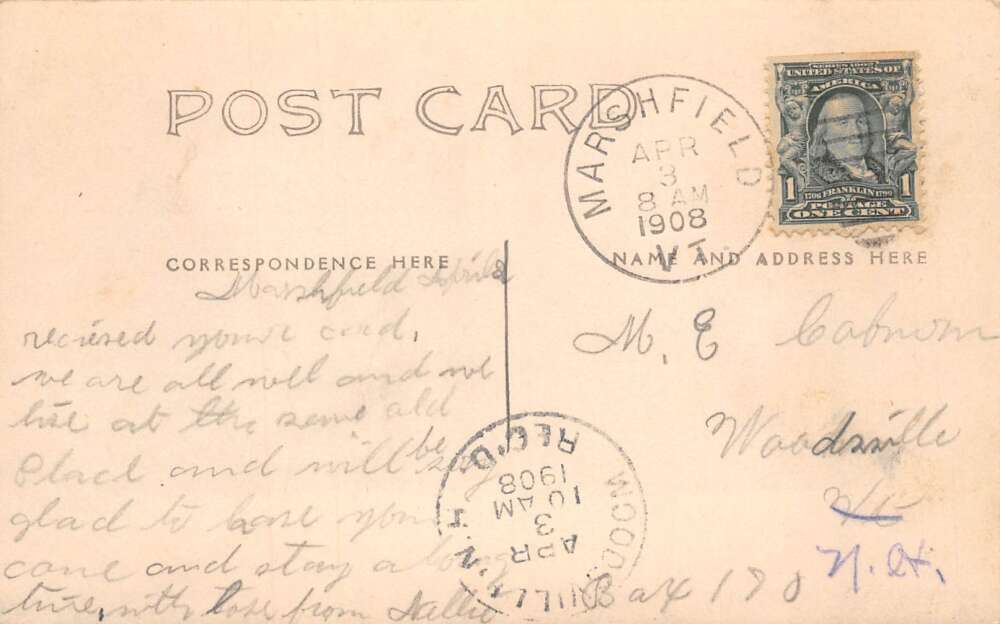 POST CARD
MARSHFIELD
APR
3
8 AM
1908
VT.
SERIES 1902
UNITED STATES OF
AMERICA
1 1706 FRANKLIN 1790 1
POSTAGE
ONE CENT
CORRESPONDENCE HERE
Marshfield April 2
recieved youre card,
we are all well and we
live at the same old
Place and will be
glad to have you
come and stay a long
time, with love from Nallie
NAME AND ADDRESS HERE
M. E Coburn
Woodsville
Vt
N.H.
Box 170
WOODSVILLE, N.H.
APR
3
10 AM
1908
REC'D